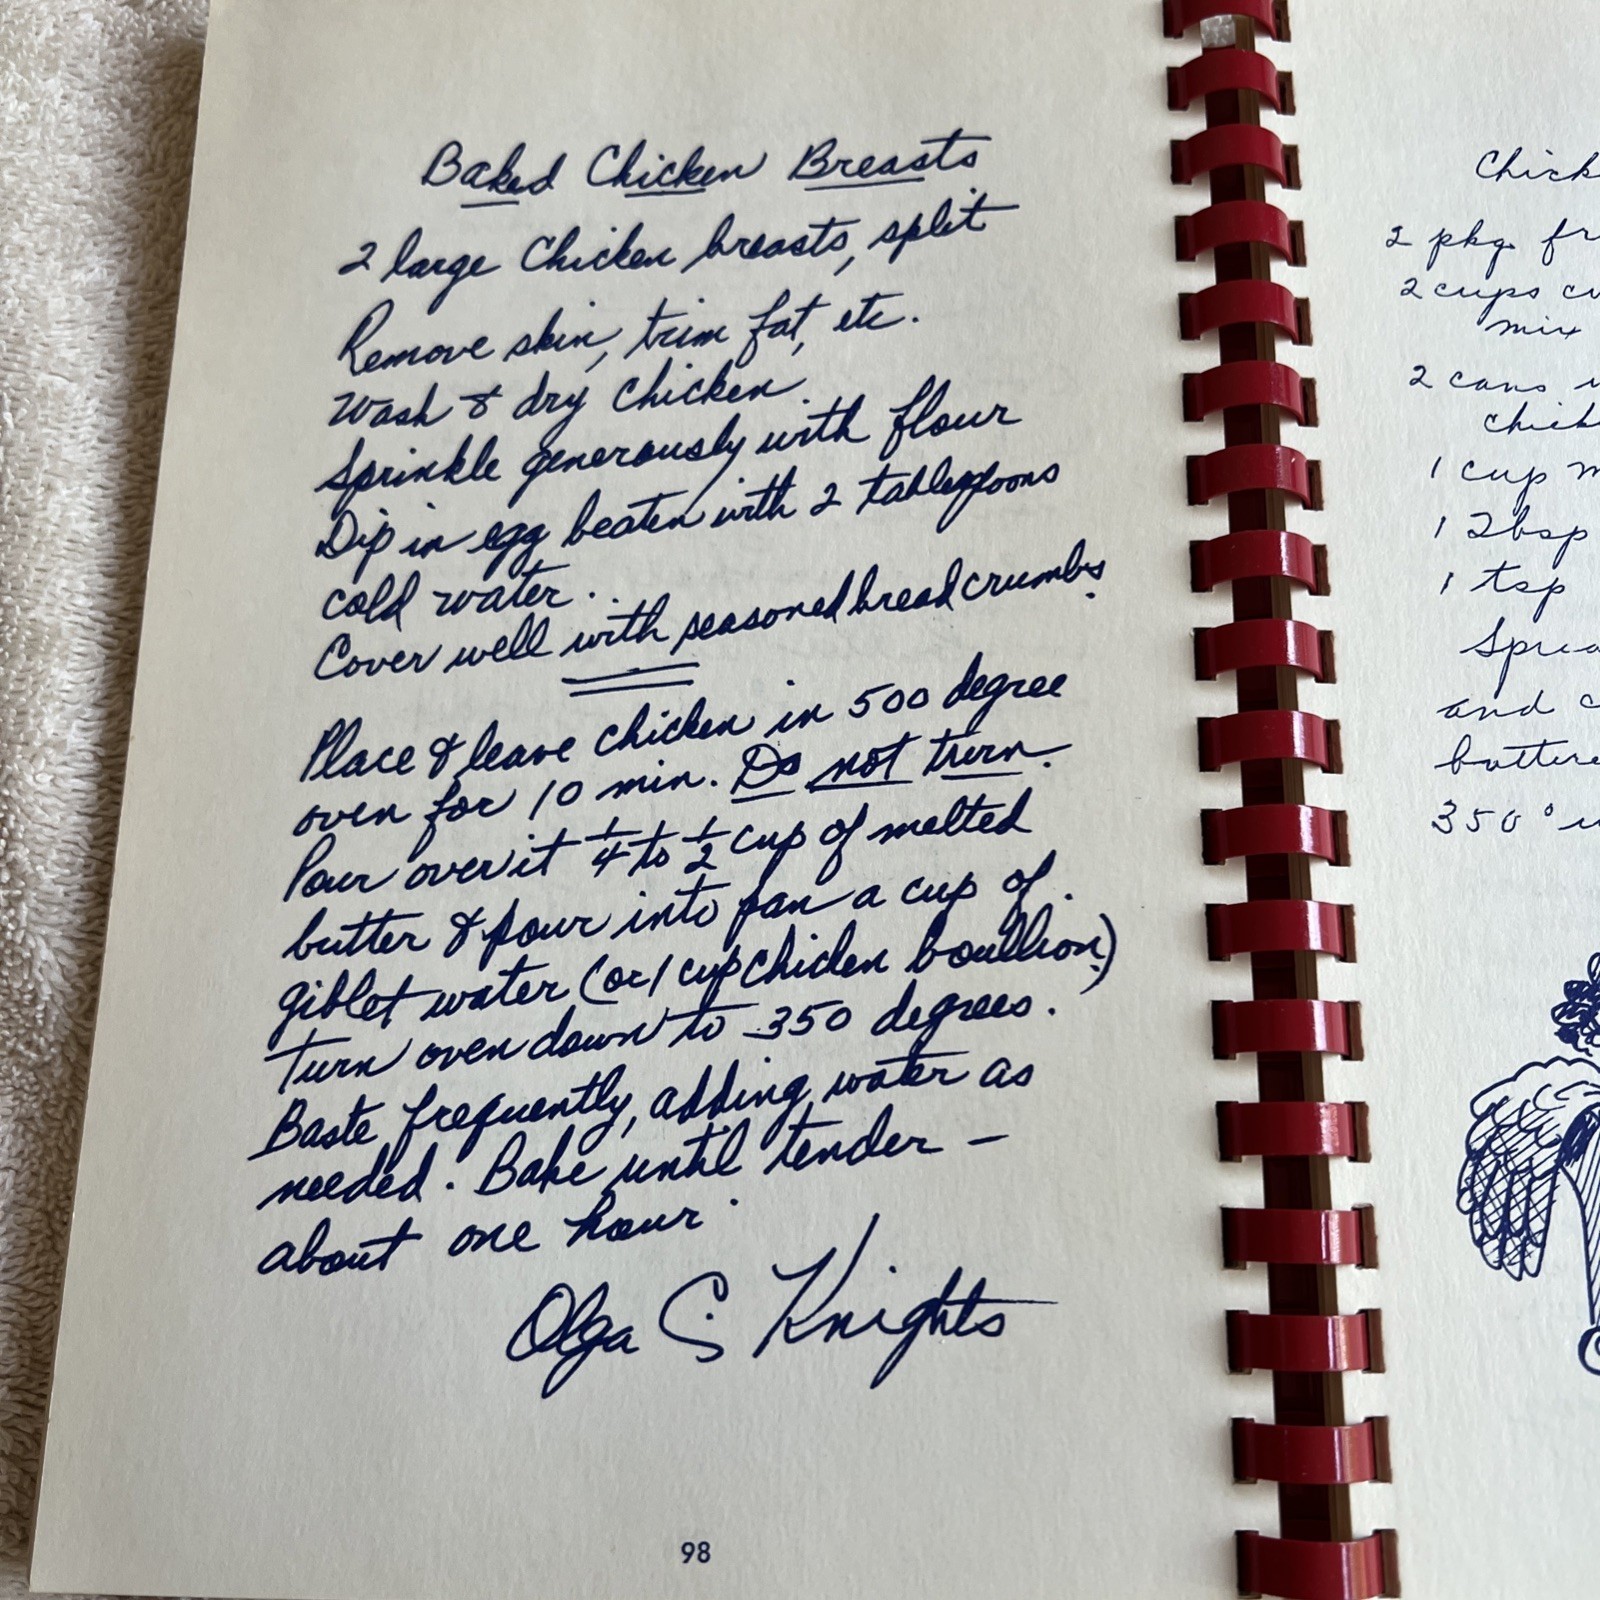 Baked Chicken Breasts
2 large Chicken breasts, split
Remove skin, trim fat, etc.
Wash & dry chicken.
Sprinkle generously with flour
Dip in egg beaten with 2 tablespoons
cold water.
Cover well with seasoned bread crumbs.
Place & leave chicken in 500 degree
oven for 10 min. Do not turn.
Pour over it 1/4 to 1/2 cup of melted
butter & pour into pan a cup of
giblet water (or 1 cup chicken boullion)
Turn oven down to 350 degrees.
Baste frequently, adding water as
needed. Bake until tender –
about one hour.
Olga S. Knights
98
Chick
2 pkg fr
2 cups cu
mix
2 cans
chick
1 cup m
1 Tbsp
1 tsp
Sprea
and c
buttere
350°